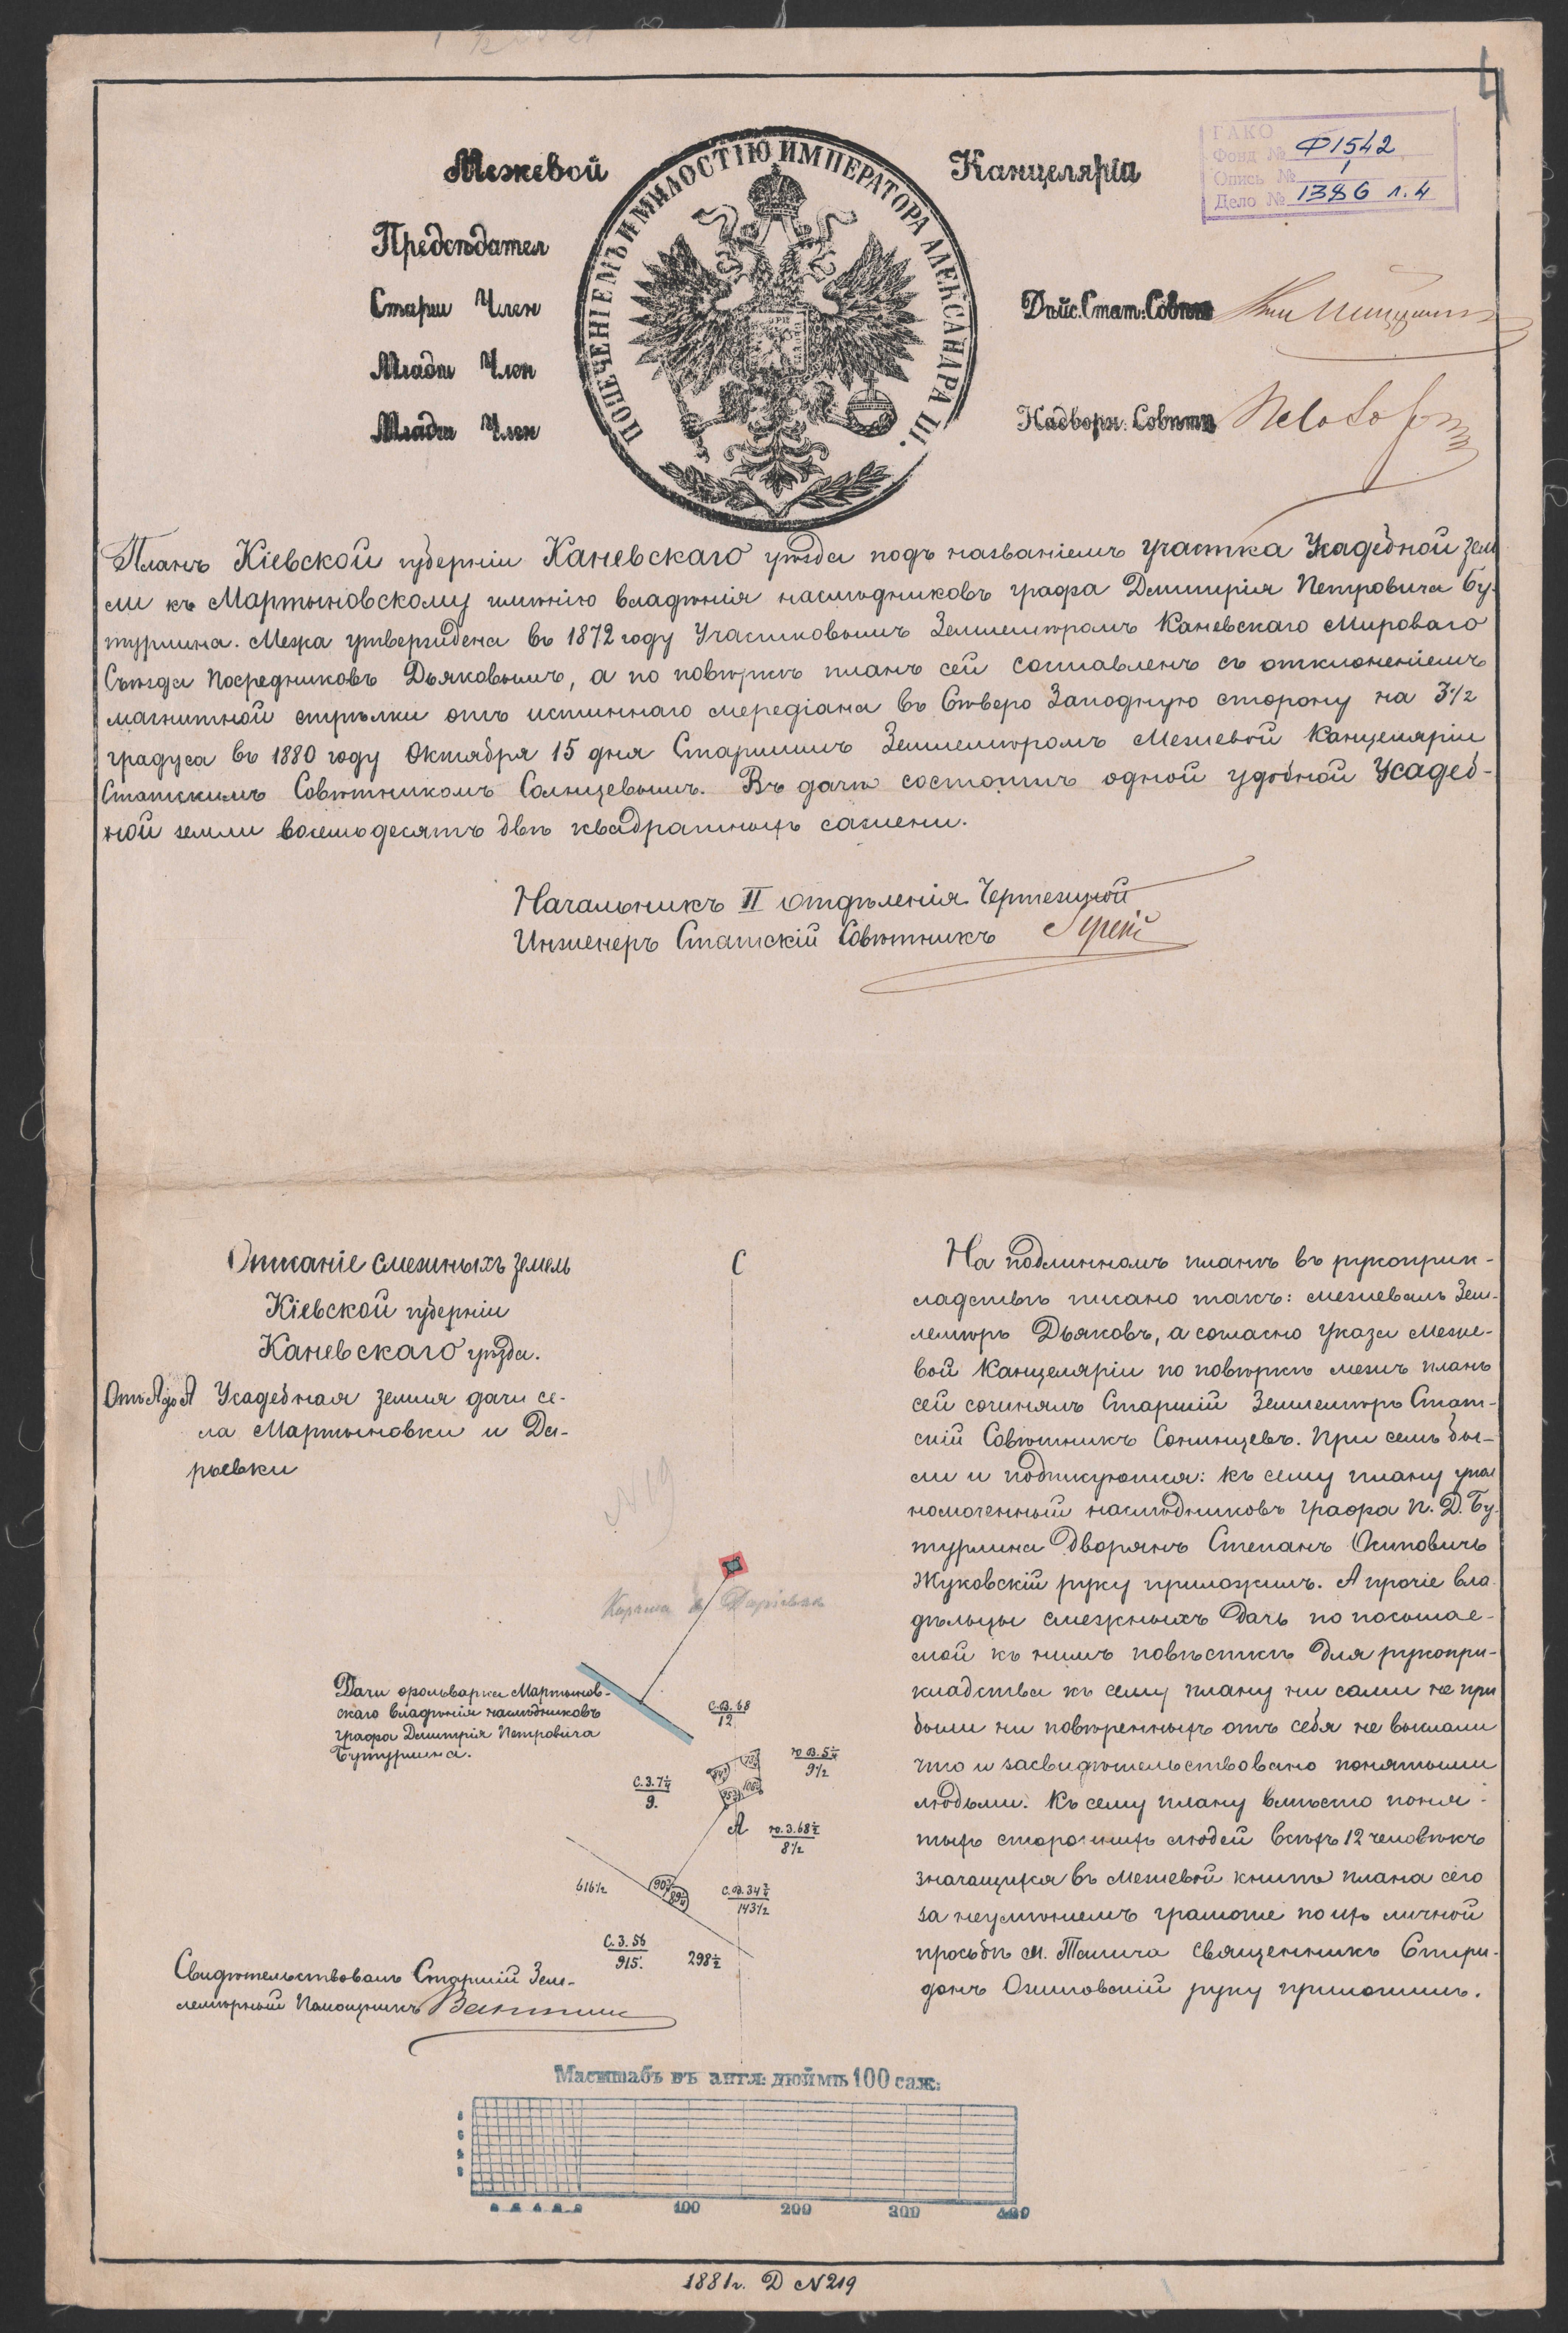 4
ГАКО
Фонд № Ф1542
Опись № 1
Дело № 1386 л. 4
Межевой Канцеляріи
ПОПЕЧЕНІЕМЪ И МИЛОСТІЮ ИМПЕРАТОРА АЛЕКСАНДРА III.
Предсѣдател
Старш Член
Дѣйс. Стат: Совѣтн
Младш Член
Младш Член
Надворн: Совѣтн
Планъ Кіевской губерніи Каневскаго уѣзда подъ названіемъ участка Усадебной зем
ли къ Мартыновскому имѣнію владѣнія наслѣдниковъ графа Дмитрія Петровича Бу-
турлина. Межа утверждена въ 1872 году Участковымъ Землемѣромъ Каневскаго Мироваго
Съѣзда Посредниковъ Дьяковымъ, а по повѣркѣ планъ сей составленъ съ отклоненіемъ
магнитной стрѣлки отъ истиннаго меридіана въ Сѣверо Западную сторону на 3 1/2
градуса въ 1880 году Октября 15 дня Старшимъ Землемѣромъ Межевой Канцеляріи
Статскимъ Совѣтникомъ Солнцевымъ. Въ дачѣ состоитъ одной удобной Усадеб-
ной земли восемьдесятъ двѣ квадратныхъ сажени.
Начальникъ II отдѣленія Чертежной
Инженеръ Статскій Совѣтникъ
Описаніе смежныхъ земель
Кіевской губерніи
Каневскаго уѣзда.
Отъ А до А Усадебная земля дачи се-
ла Мартыновки и Да-
рьевки
С
№ 19
Корчма в Даріевкѣ
Дачи фольварка Мартынов-
скаго владѣнія наслѣдниковъ
графа Дмитрія Петровича
Бутурлина.
С.В. 68
12
Ю.В. 5 1/4
9 1/2
С.З. 7 1/4
9.
А
Ю.З. 68 1/2
8 1/2
616 1/2
С.В. 34 3/4
143 1/2
С.З. 56
915.
298 1/2
Свидѣтельствовалъ Старшій Зем-
лемѣрный Помощникъ
На подлинномъ планѣ въ рукоприк-
ладствѣ писано такъ: межевалъ Зем-
лемѣръ Дьяковъ, а согласно указа Меже-
вой Канцеляріи по повѣркѣ межъ планъ
сей сочинялъ Старшій Землемѣръ Стат-
скій Совѣтникъ Сонинцевъ. При семъ бы-
ли и подпишутся: къ сему плану упол
номоченный наслѣдниковъ графа П. Д. Бу-
турлина Дворянъ Степанъ Осиповичъ
Жуковскій руку приложилъ. А прочіе вла
дѣльцы смежныхъ дачъ по посылае-
мой къ нимъ повѣсткѣ для рукопри-
кладства къ сему плану ни сами не при
были ни повѣренныхъ отъ себя не выслали
что и засвидѣтельствовано понятыми
людьми. Къ сему плану вмѣсто поня-
тыхъ стороннихъ людей всѣхъ 12 человѣкъ
значащихся въ Межевой книгѣ плана сего
за неумѣніемъ грамоте по ихъ личной
просьбѣ м. Таганча священникъ Спири-
донъ руку приложилъ.
Масштабъ въ англ: дюймѣ 100 саж:
100 200 300 400
1881 г. Д №219